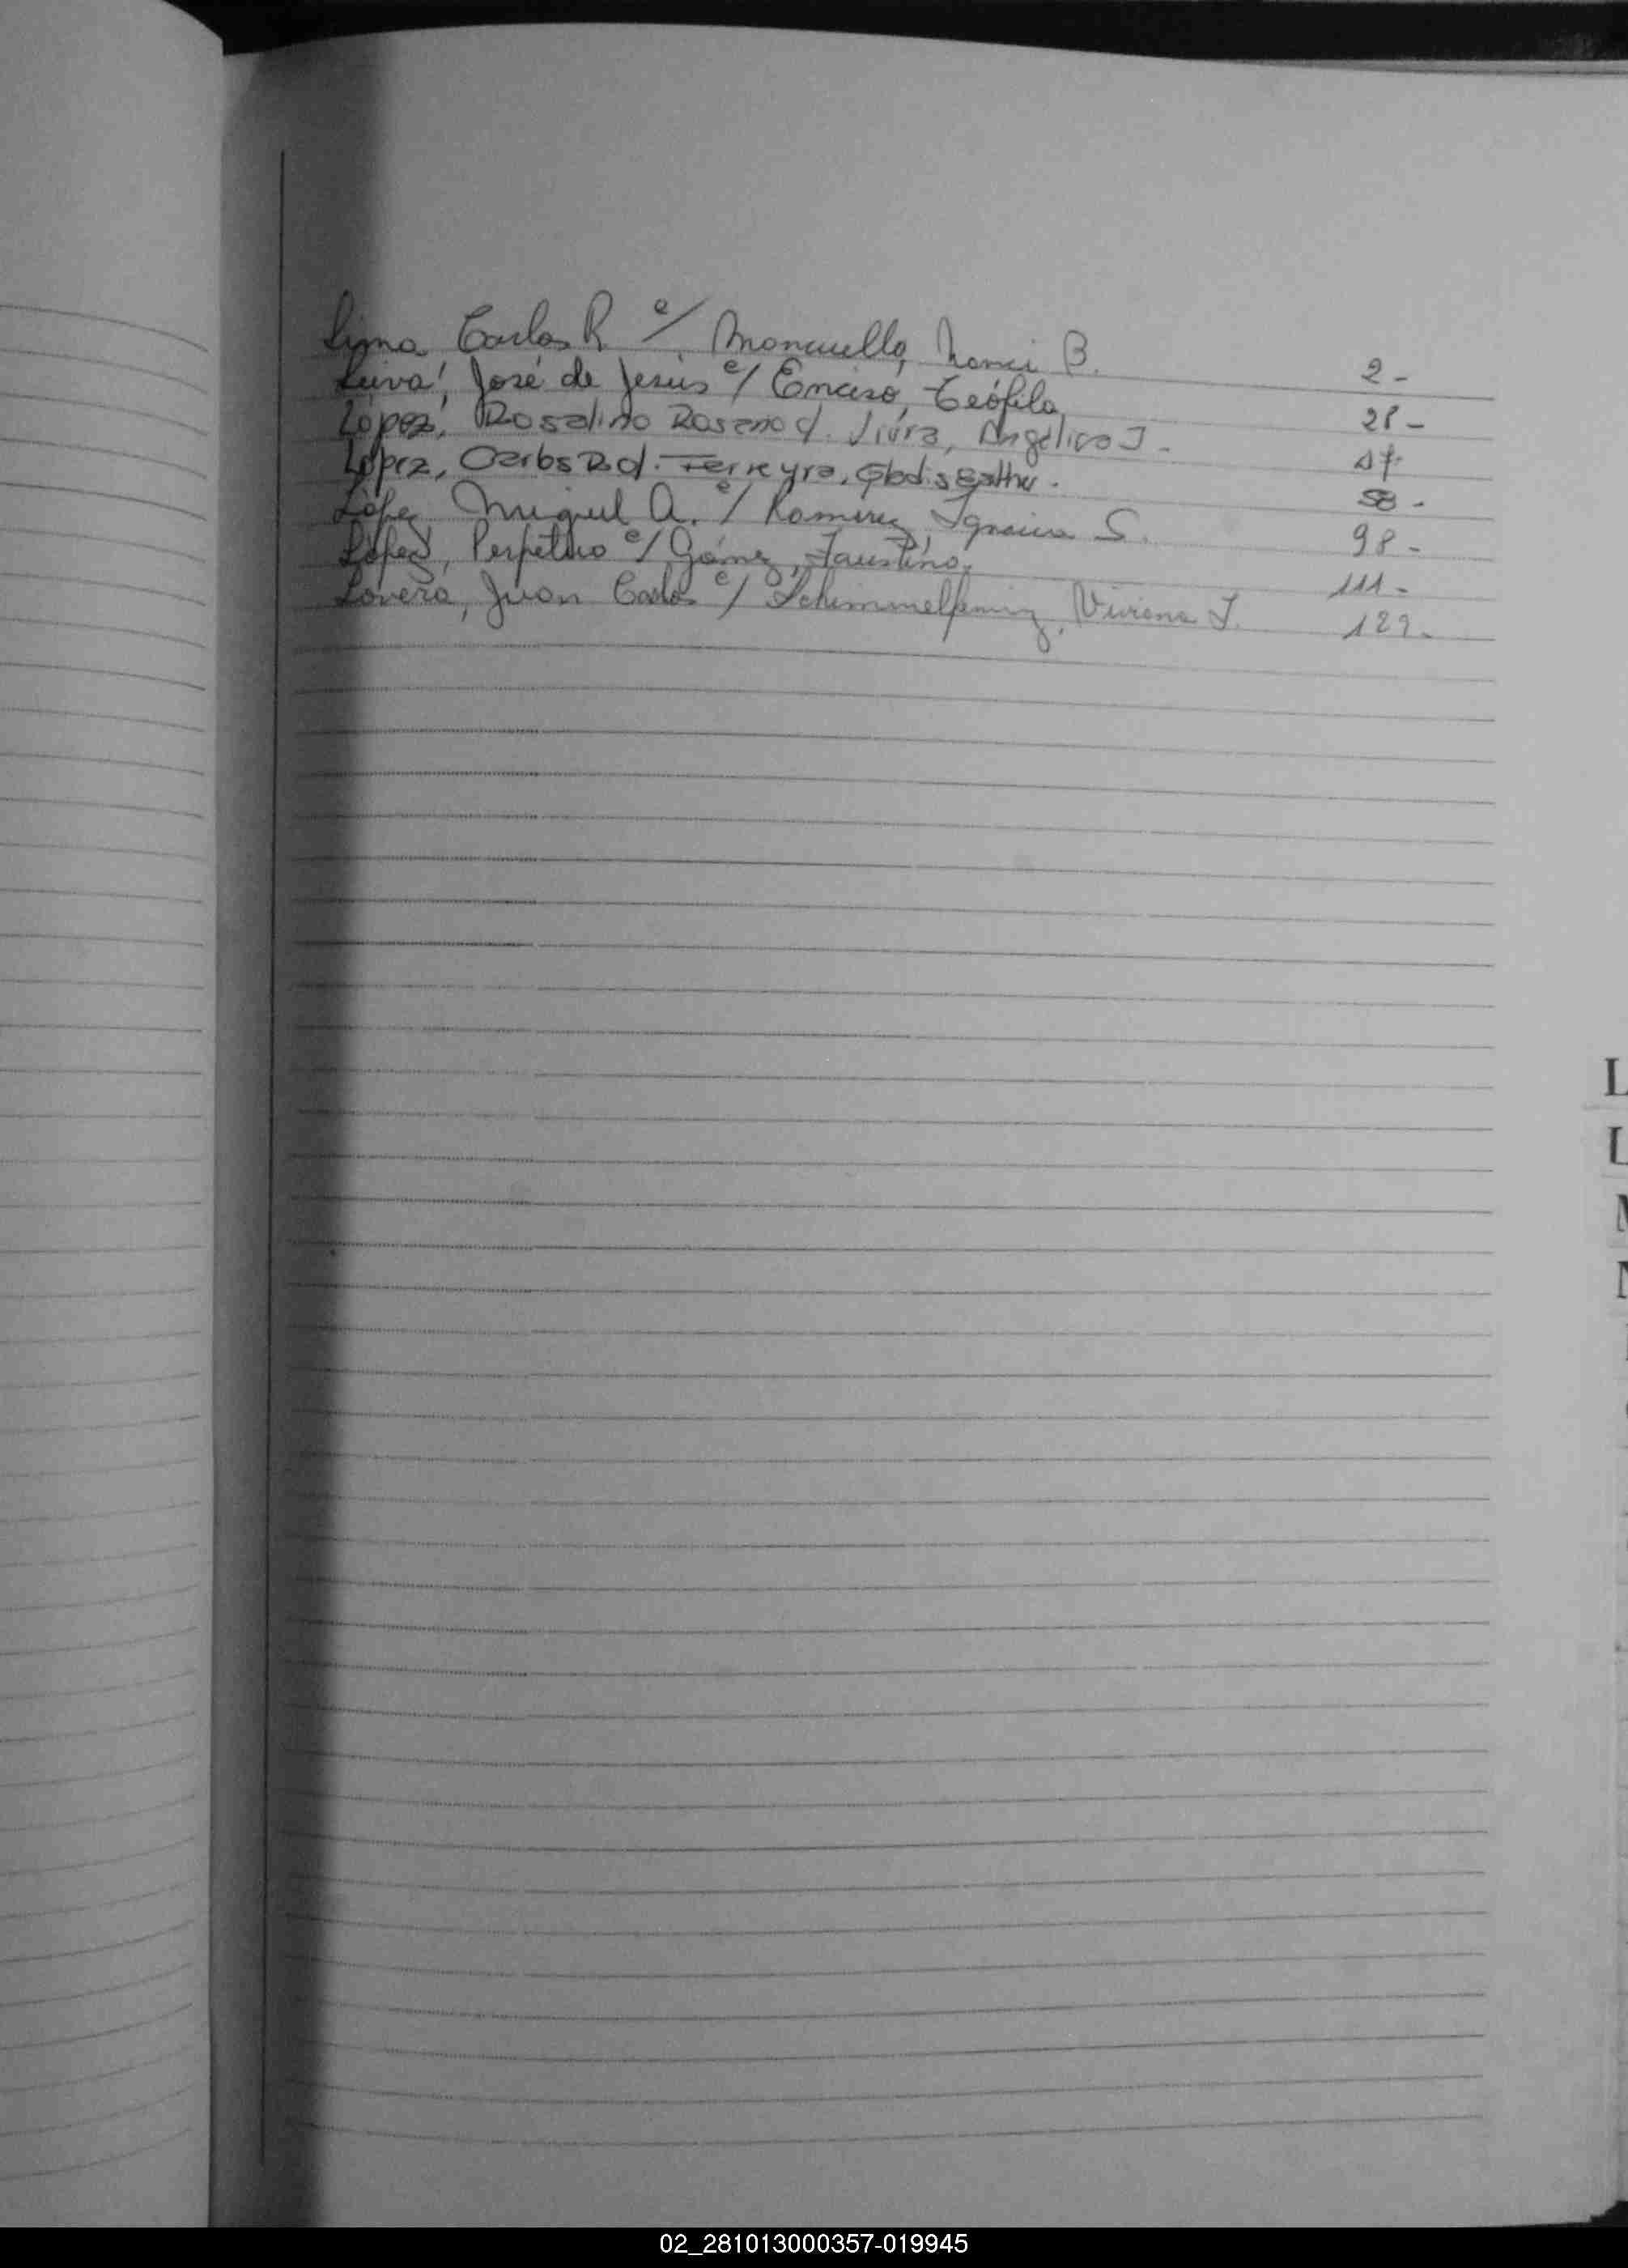 Lima Carlos R c/. Moncuello, Nanci B. 2-
Leiva, José de Jesús c/ Enciso, Teófila, 28-
López, Rosalino Roseno d. Jiura, Angélica J- 47-
López, Carlos R. d. Ferreyra, Gladis Esther. 58-
López Miguel A. c/ Ramirez, Ignacia S. 98-
López, Perpetuo c/ Gómez, Faustino, 111-
Lovera, Juan Carlos c/ Schimmelfennig, Viviana J. 129-
L
L
M
N
02_281013000357-019945